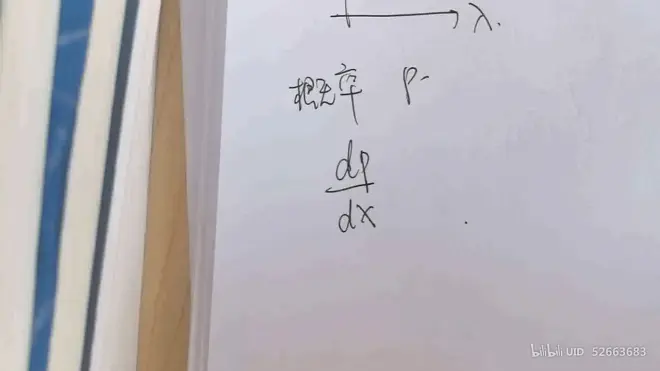 λ.
概率 P-
dp
dx
bilibili UID 52663683